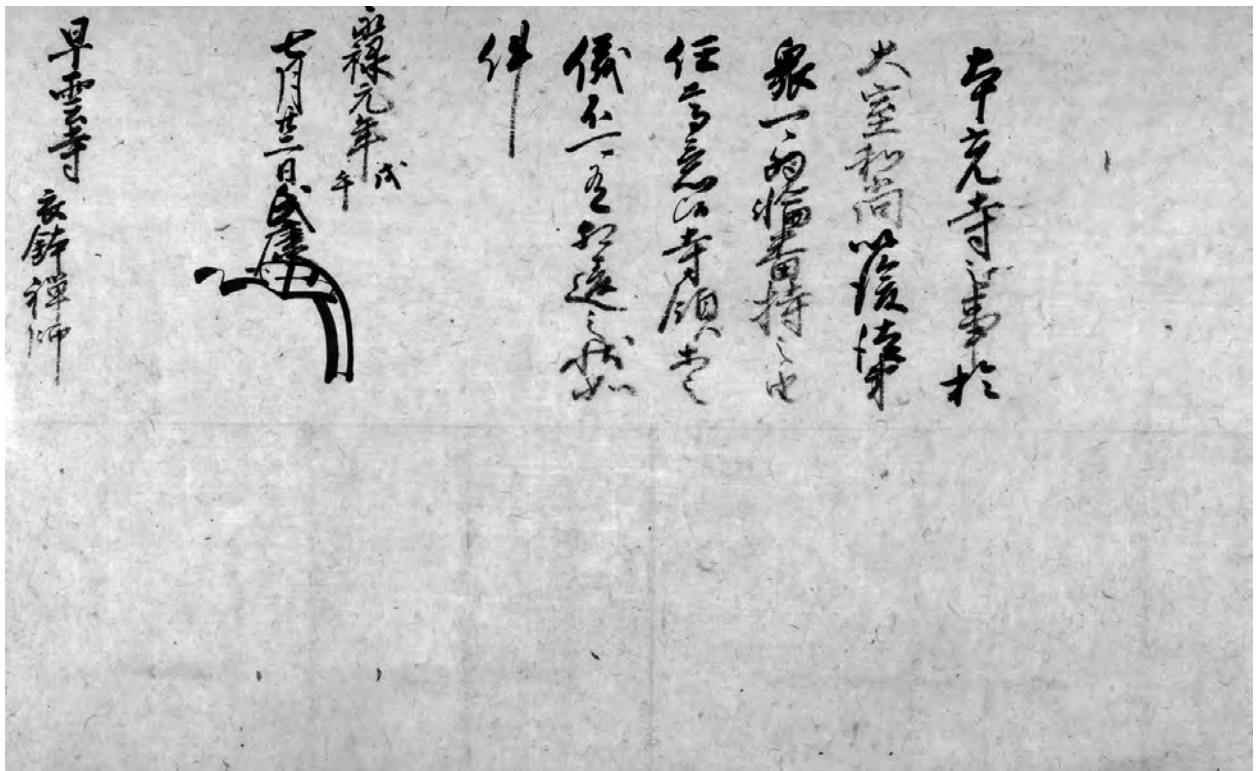 本光寺之事於
大室和尚以後法第
衆一之為輪番持之由
任尊意候寺領書之
儀不可有相違之状如
件
永禄元年戊午
七月廿二日氏康
早雲寺
衣鉢禅師